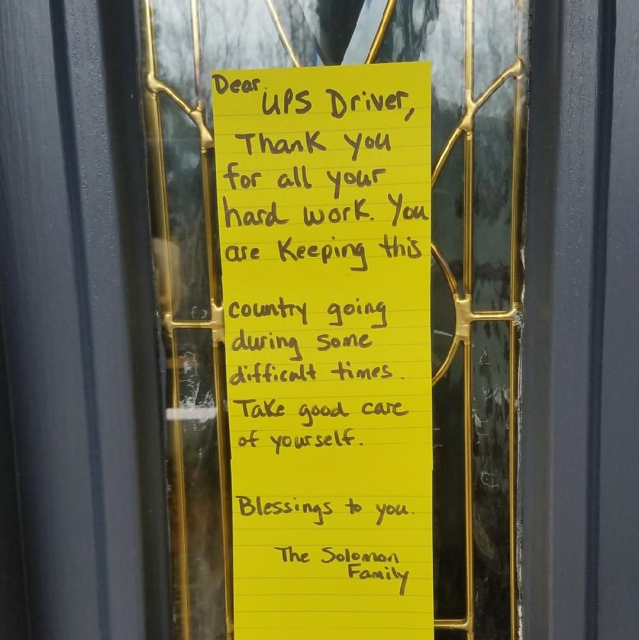 Dear
UPS Driver,
Thank you
for all your
hard work. You
are Keeping this
country going
during some
difficult times.
Take good care
of yourself.
Blessings to you.
The Solomon
Family